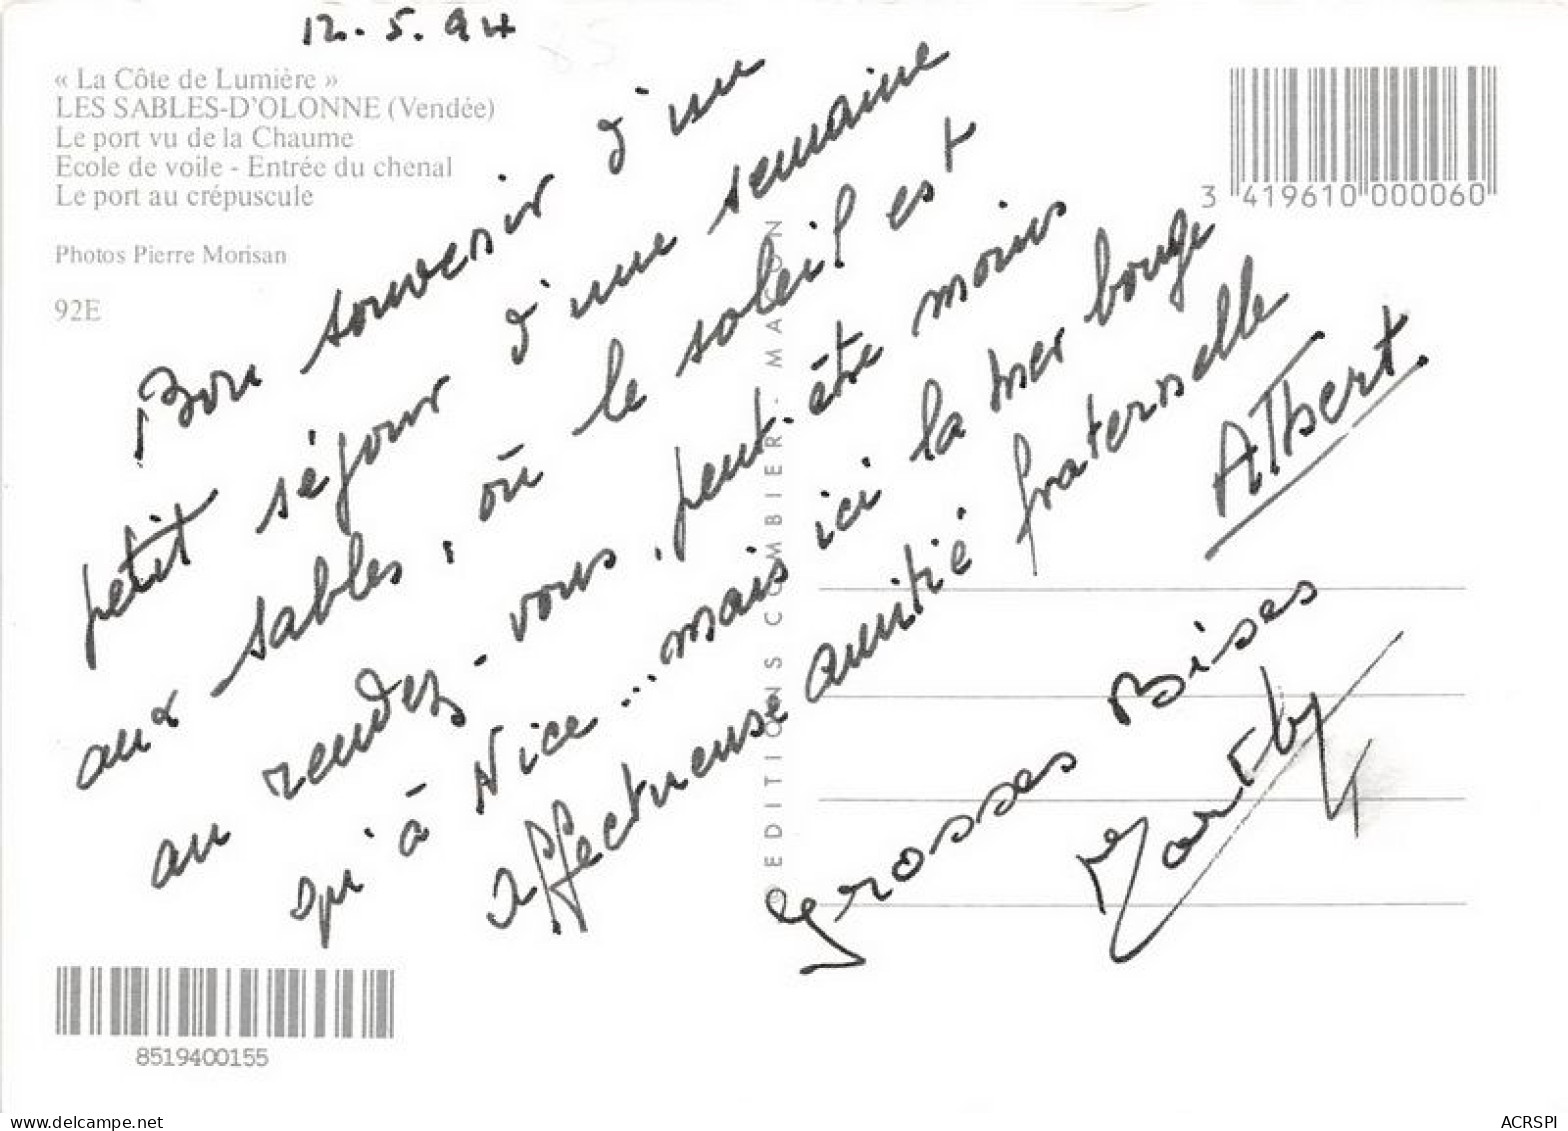 12.5.94
« La Côte de Lumière »
LES SABLES-D'OLONNE (Vendée)
Le port vu de la Chaume
Ecole de voile - Entrée du chenal
Le port au crépuscule
Photos Pierre Morisan
92E
3 419610 000060
Bon souvenir d'un
petit séjour d'une semaine
aux sables, où le soleil est
au rendez-vous, peut-être moins
qu'à Nice... mais ici la mer bouge
Affectueuse amitié fraternelle
Albert.
Grosses Bises
EDITIONS COMBIER - MACON
8519400155
www.delcampe.net
ACRSPI